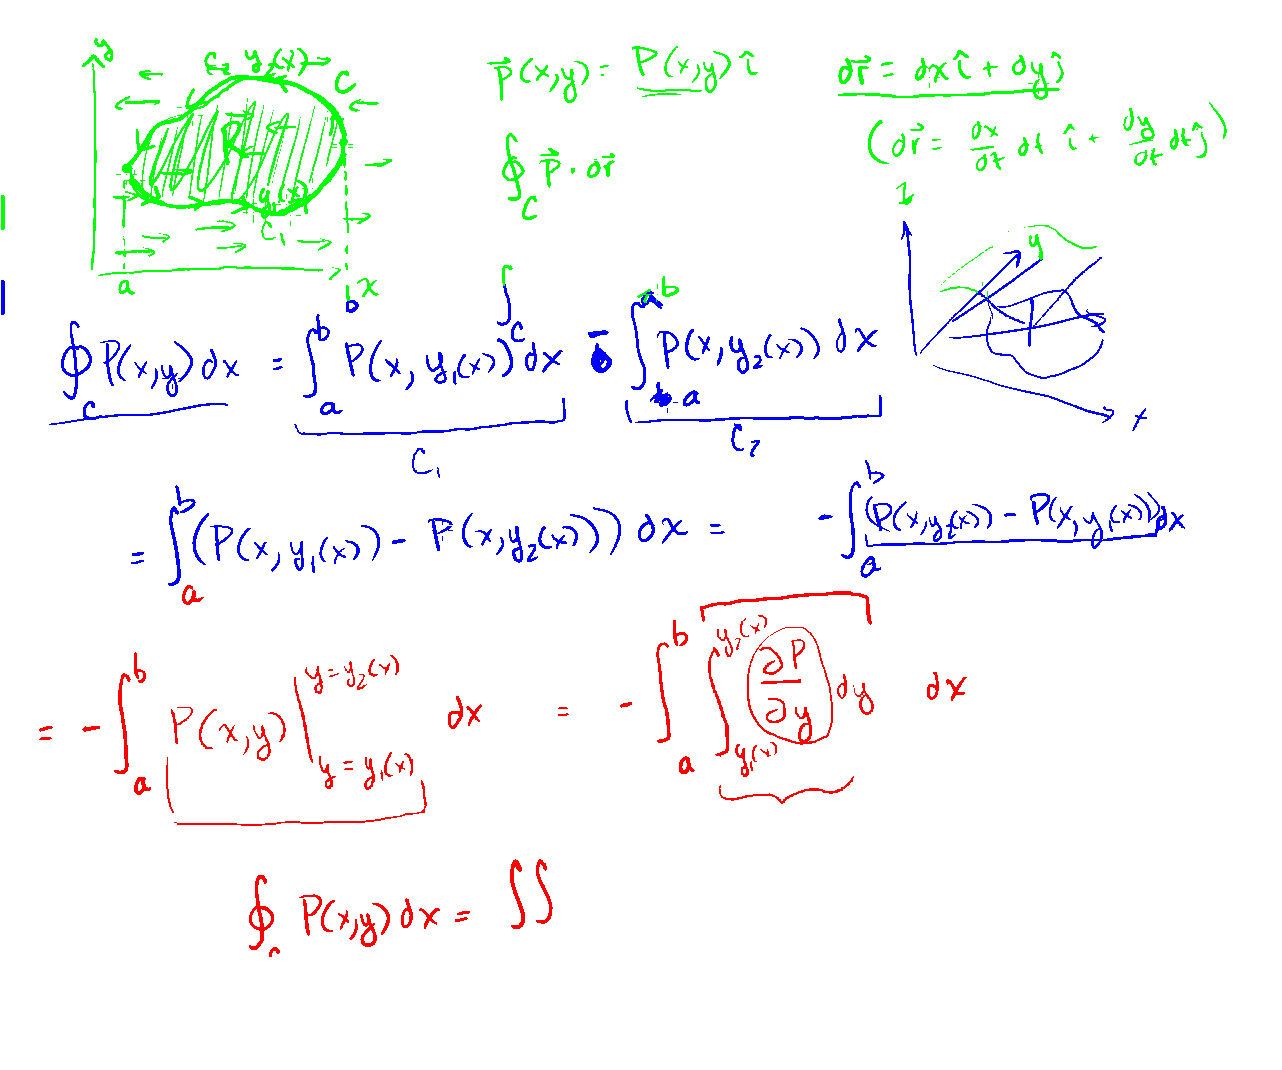 y
C₂ y₂(x)
C
R
y₁(x)
C₁
a b x
p⃗(x,y) = P(x,y) î
dr⃗ = dx î + dy ĵ
(dr⃗ = dx/dt dt î + dy/dt dt ĵ)
∮_C p⃗ · dr⃗
z
y
x
∫_C
∮_C P(x,y) dx = ∫_a^b P(x, y₁(x)) dx - ∫_a^b P(x, y₂(x)) dx
C₁ C₂
= ∫_a^b (P(x, y₁(x)) - P(x, y₂(x))) dx = - ∫_a^b (P(x, y₂(x)) - P(x, y₁(x))) dx
= - ∫_a^b P(x,y) |_{y = y₁(x)}^{y = y₂(x)} dx = - ∫_a^b ∫_{y₁(x)}^{y₂(x)} ∂P/∂y dy dx
∮_C P(x,y) dx = ∫∫